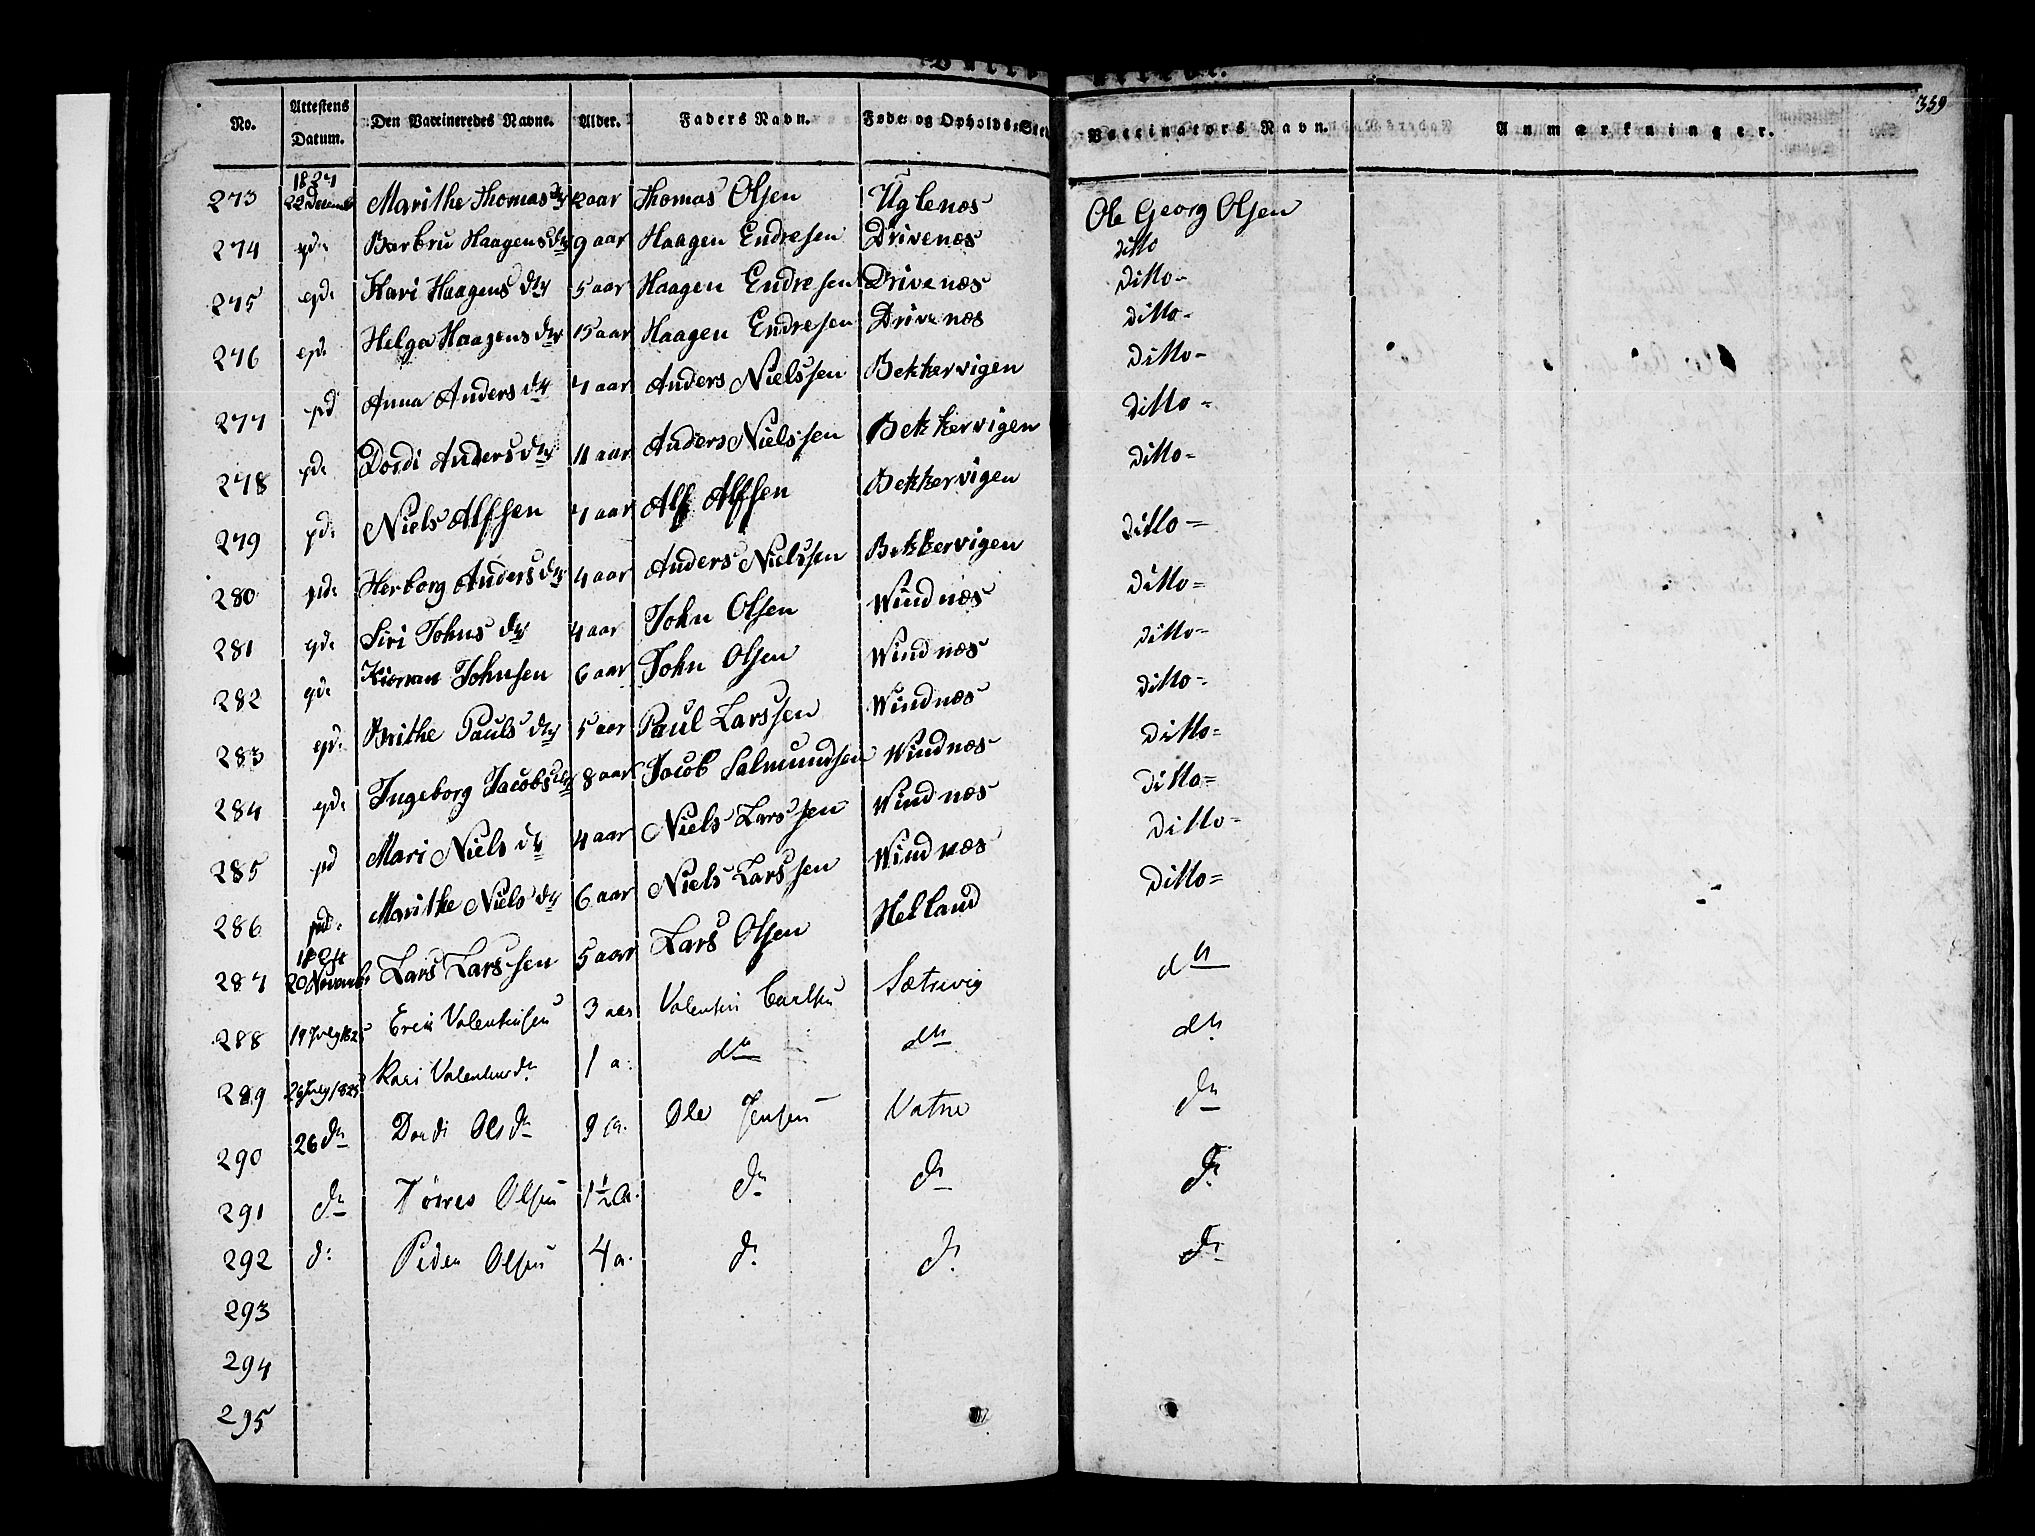 359
No. Attestens Datum. Den Vaccineredes Navne. Alder. Faders Navn. Føde- og Opholds-Sted Vaccinateurs Navn. Anmærkninger.
1827
273 22 Decemb Marithe Thomas dtr 12 aar Thomas Olsen Uglenæs Ole Georg Olsen
274 Barbru Haagens dtr 9 aar Haagen Endresen Drivenæs ditto
275 Kari Haagens dtr 5 aar Haagen Endresen Drivenæs ditto-
276 Helga Haagens dtr 15 aar Haagen Endresen Drivenæs ditto-
277 Anna Anders dtr 7 aar Anders Nielssen Bekkervigen ditto-
278 Dordi Anders dtr 11 aar Anders Nielssen Bekkervigen ditto-
279 Niels Alfsen 7 aar Alf Alfsen Bekkervigen ditto-
280 Herborg Anders dtr 4 aar Anders Nielssen Bekkervigen ditto-
281 Siri Johns dtr 4 aar John Olsen Windnæs ditto-
282 Johnsen 6 aar John Olsen Windnæs ditto-
283 Brithe Pauls dtr 5 aar Paul Larssen Windnæs ditto-
284 Ingeborg Jacobs dtr 8 aar Jacob Salmundsen Windnæs ditto-
285 Mari Niels dtr 4 aar Niels Larssen Windnæs ditto-
286 Marithe Niels dtr 6 aar Niels Larssen Windnæs ditto-
287 20 Novemb Lars Larssen 5 aar Lars Olsen Helland ditto-
288 19 July 1825 Valentinsen 3 aar Valentin Sætrevig do
289 26 July 1825 Kari Valentins dr 1 a. do do do
290 26 do Dordi Ols dr 9 a. Ole Jensen Vatne do
291 do Olsen 1½ a. do do do
292 do Peder Olsen 4 a. do do do
293
294
295